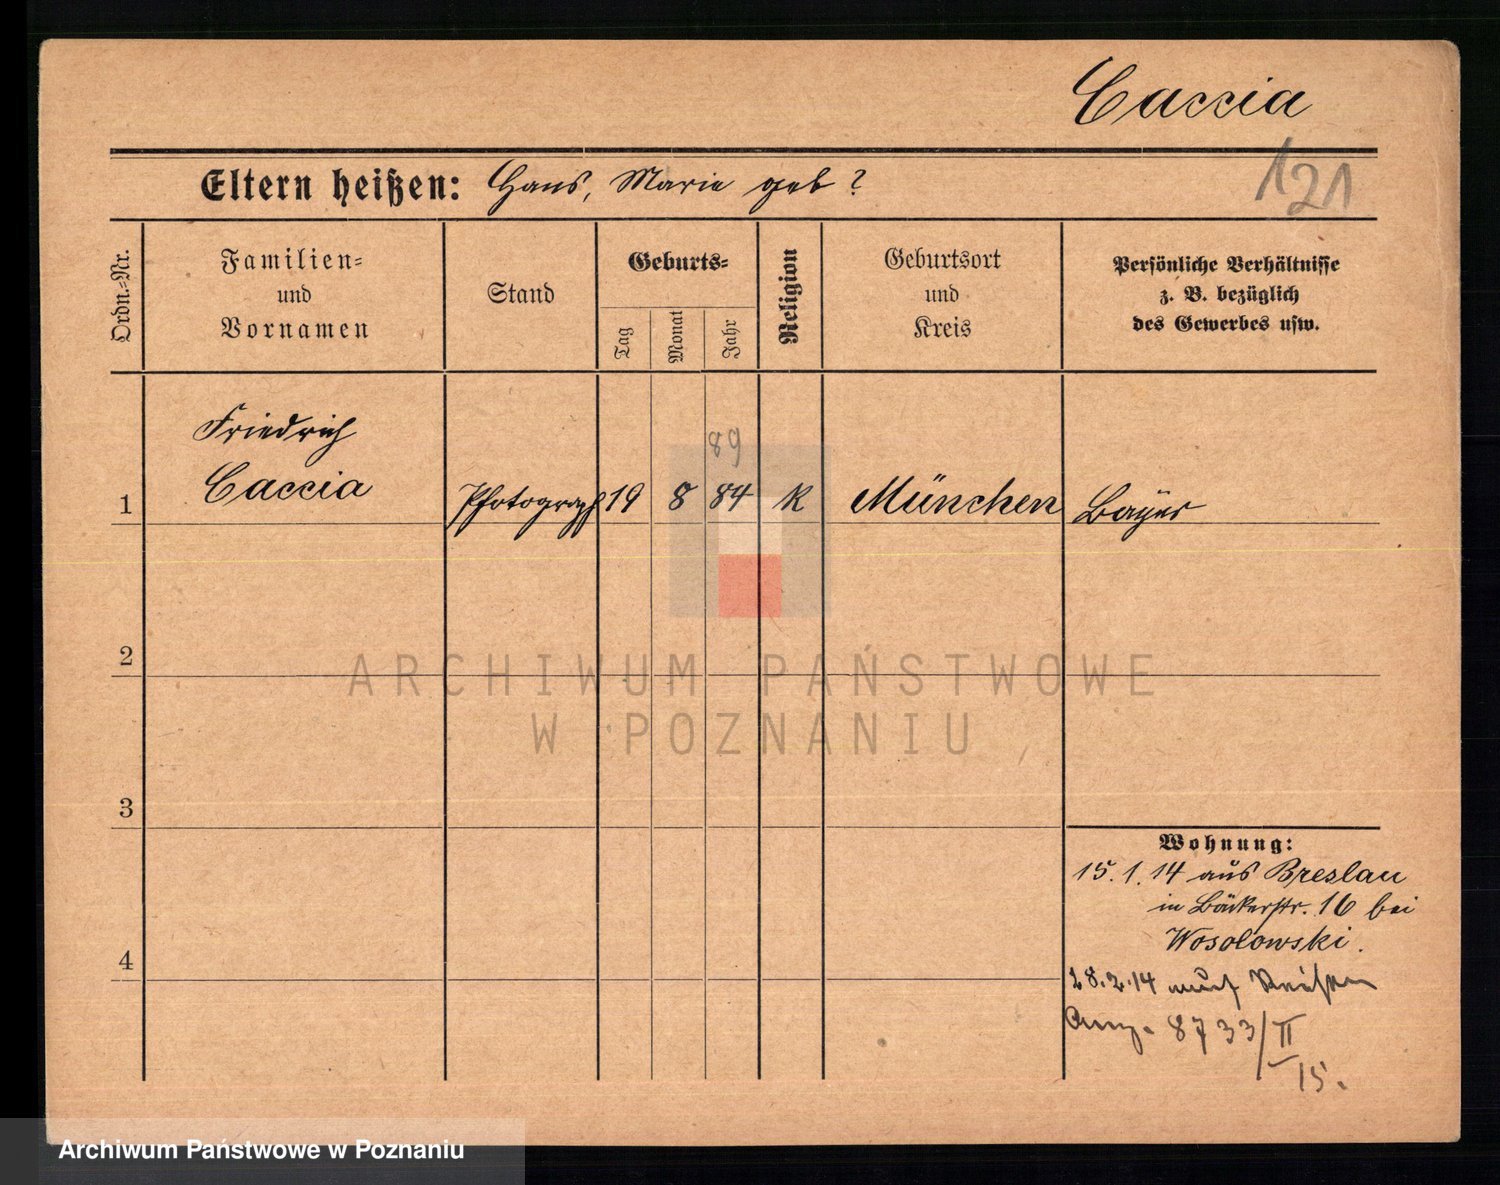 Caccia
121
Eltern heißen: Hans, Marie geb ?
Ordn.-Nr.
Familien-
und
Vornamen
Stand
Geburts-
Tag
Monat
Jahr
Religion
Geburtsort
und
Kreis
Persönliche Verhältnisse
z. B. bezüglich
des Gewerbes usw.
89
Friedrich
1 Caccia Photograph 19 8 84 K München Bayer
2
3
4
Wohnung:
15.1.14 aus Breslau
in Bäckerstr. 16 bei
Wosolowski.
28.2.14 auf Reisen
8733/II
15.
ARCHIWUM PAŃSTWOWE
W POZNANIU
Archiwum Państwowe w Poznaniu